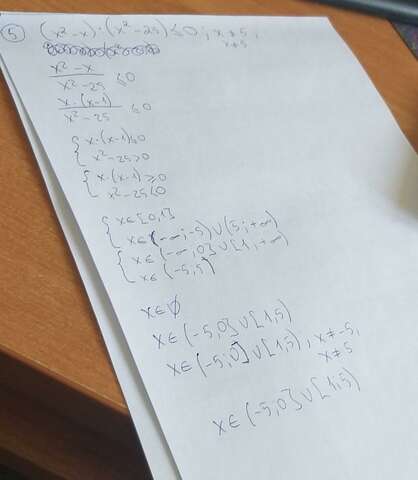 5 (x²-x):(x²-25)≤0; x≠5;
x≠5
x²-x / x²-25 ≤0
x·(x-1) / x²-25 ≤0
{ x·(x-1)≤0
x²-25>0
{ x·(x-1)≥0
x²-25<0
{ x∈[0,1]
x∈(-∞;-5)∪(5;+∞)
{ x∈(-∞,0]∪[1,+∞)
x∈(-5,5)
x∈∅
x∈(-5,0]∪[1,5)
x∈(-5;0]∪[1,5), x≠-5,
x≠5
x∈(-5,0]∪[1;5)